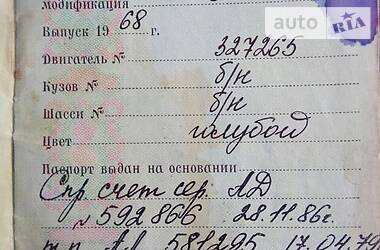 модификация
auto
RIA
Выпуск 19 68 г.
Двигатель № 327265
Кузов № б/н
Шасси № б/н
Цвет голубой
Паспорт выдан на основании
Спр. счет сер. АД
№ 592866 28.11.86г.
581295 17.04.79